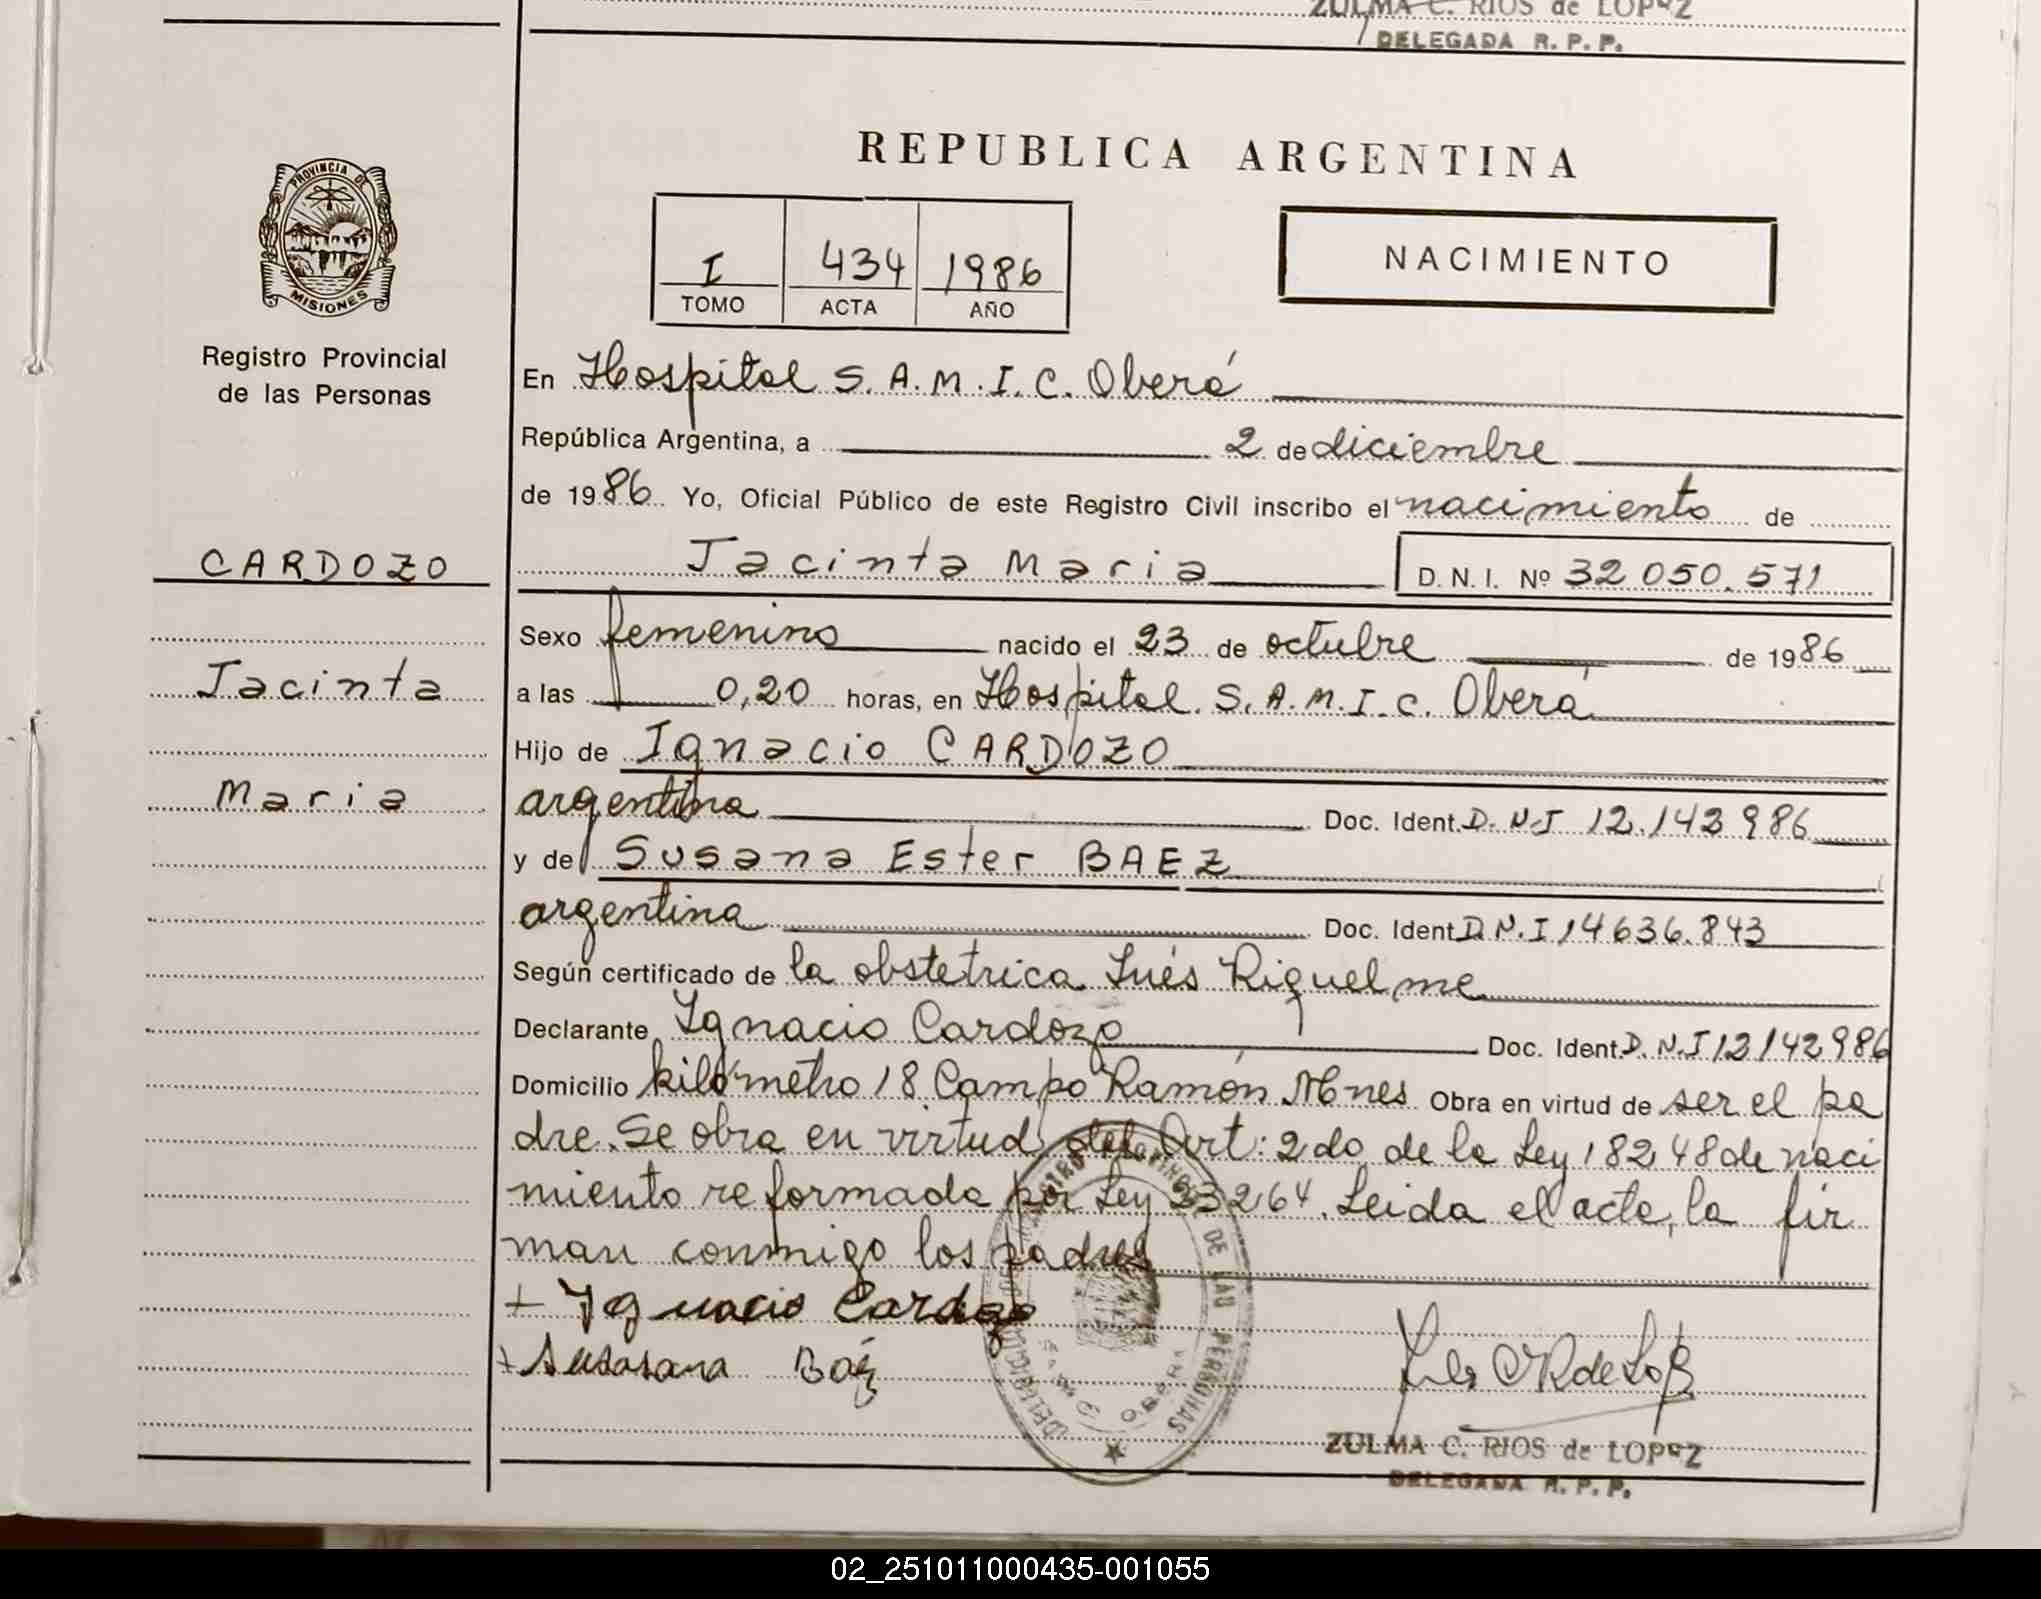 ZULMA C. RIOS de LOPEZ
DELEGADA R. P. P.
REPUBLICA ARGENTINA
PROVINCIA DE
MISIONES
Registro Provincial
de las Personas
I 434 1986
TOMO ACTA AÑO
NACIMIENTO
En Hospital S.A.M.I.C. Oberá
República Argentina, a 2 de diciembre
de 1986 Yo, Oficial Público de este Registro Civil inscribo el nacimiento de
CARDOZO
Jacinta Maria D. N. I. Nº 32 050.571
Sexo femenino nacido el 23 de octubre de 1986
Jacinta
a las 0,20 horas, en Hospital S.A.M.I.C. Oberá
Hijo de Ignacio CARDOZO
Maria
argentina Doc. Ident. D.N.I 12.142 986
y de Susana Ester BAEZ
argentina Doc. Ident D.N.I 14636.843
Según certificado de la obstetrica Inés Riquelme
Declarante Ignacio Cardozo Doc. Ident. D.N.I 12142986
Domicilio kilómetro 18 Campo Ramón Mnes Obra en virtud de ser el pa
dre. Se obra en virtud del Art: 2do de la Ley 18248 de naci
miento reformada por Ley 23264. Leida el acta, la fir
man conmigo los padres
+ Ignacio Cardozo
+ Sussana Baéz
ZULMA C. RIOS de LOPEZ
DELEGADA R. P. P.
DE LAS PERSONAS
OBERA
02_251011000435-001055